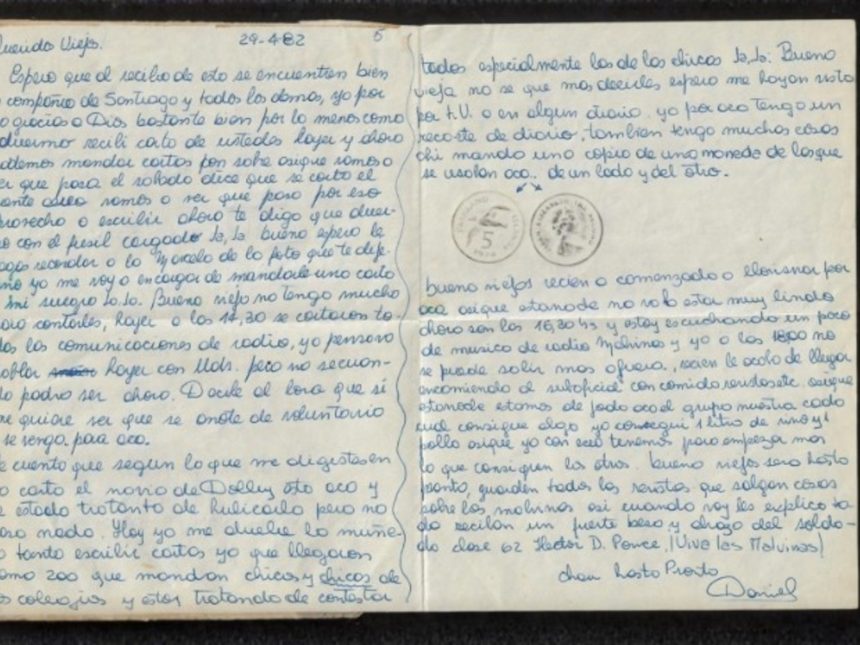 Querido Viejo.
29-4-82
5
Espero que al recibo de esto se encuentren bien
compañia de Santiago y todos los demas, yo por
gracias a Dios bastante bien por lo menos como
duermo recibi carta de ustedes hayer y ahora
podemos mandar cartas por sobre asique vamos a
ver que pasa el soldado dice que se corto el
vamos a ver que pasa por eso
aprovecho a escribir ahora te digo que duer-
mo con el fusil cargado Ja, Ja. bueno espero le
hagas recordar a la Marcela de la foto que te deje.
yo me voy a encargar de mandarle una carta
mi suegro Ja.Ja. Bueno viejo no tengo mucho
para contarles, hayer a las 17,30 se cortaron to-
das las comunicaciones de radio, yo pensava
hablar hayer con Uds. pero no se cuan-
do podra ser ahora. Decile al lora que si
me quiere ver que se anote de voluntario
se venga para aca.
Te cuento que segun lo que me digistes en
carta el novio de Dolly esta aca y
e estado tratando de hubicarlo pero no
paso nada. Hoy yo me duele la muñe-
tanto escribir cartas ya que llegaron
como 200 que mandan chicas y chicos de
los colegios y estoy tratando de contestar
todas especialmente las de las chicas Ja,Ja. Bueno
vieja no se que mas decirles espero me hayan visto
por T.V. o en algun diario. yo por aca tengo un
recorte de diario, tambien tengo muchas cosas
ahi mando una copia de una moneda de las que
se usaban aca. de un lado y del otro.
5
1974
bueno viejos recien a comenzado a lloviznar por
aca asique esta noche no va a estar muy linda
ahora son las 16,30 hs y estoy escuchando un poco
de musica de radio Malvinas y ya a las 1800 no
se puede salir mas afuera, recien le acaba de llegar
encomienda al suboficial con comida revistas etc. asique
esta noche estamos de joda aca el grupo nuestro cada
cual consigue algo yo consegui 1 litro de vino y 1
pollo asique ya con eso tenemos para empezar mas
lo que consiguen los otros. bueno viejos sera hasta
pronto, guarden todas las revistas que salgan cosas
sobre las malvinas asi cuando voy les explico to-
do reciban un fuerte beso y abrazo del solda-
do clase 62 Hector D. Ponce. ¡Viva las Malvinas!
chau hasta Pronto
Daniel